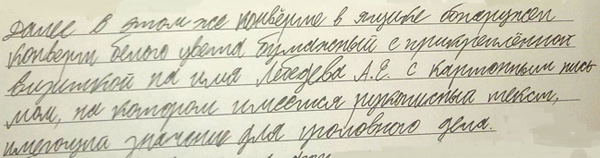 Далее в этом же конверте в ящике обнаружен
конверт белого цвета бумажный с прикреплённой
визиткой на имя Лебедева А.Е. с картонным пись
мом, на котором имеется рукописный текст,
имеющий значение для уголовного дела.